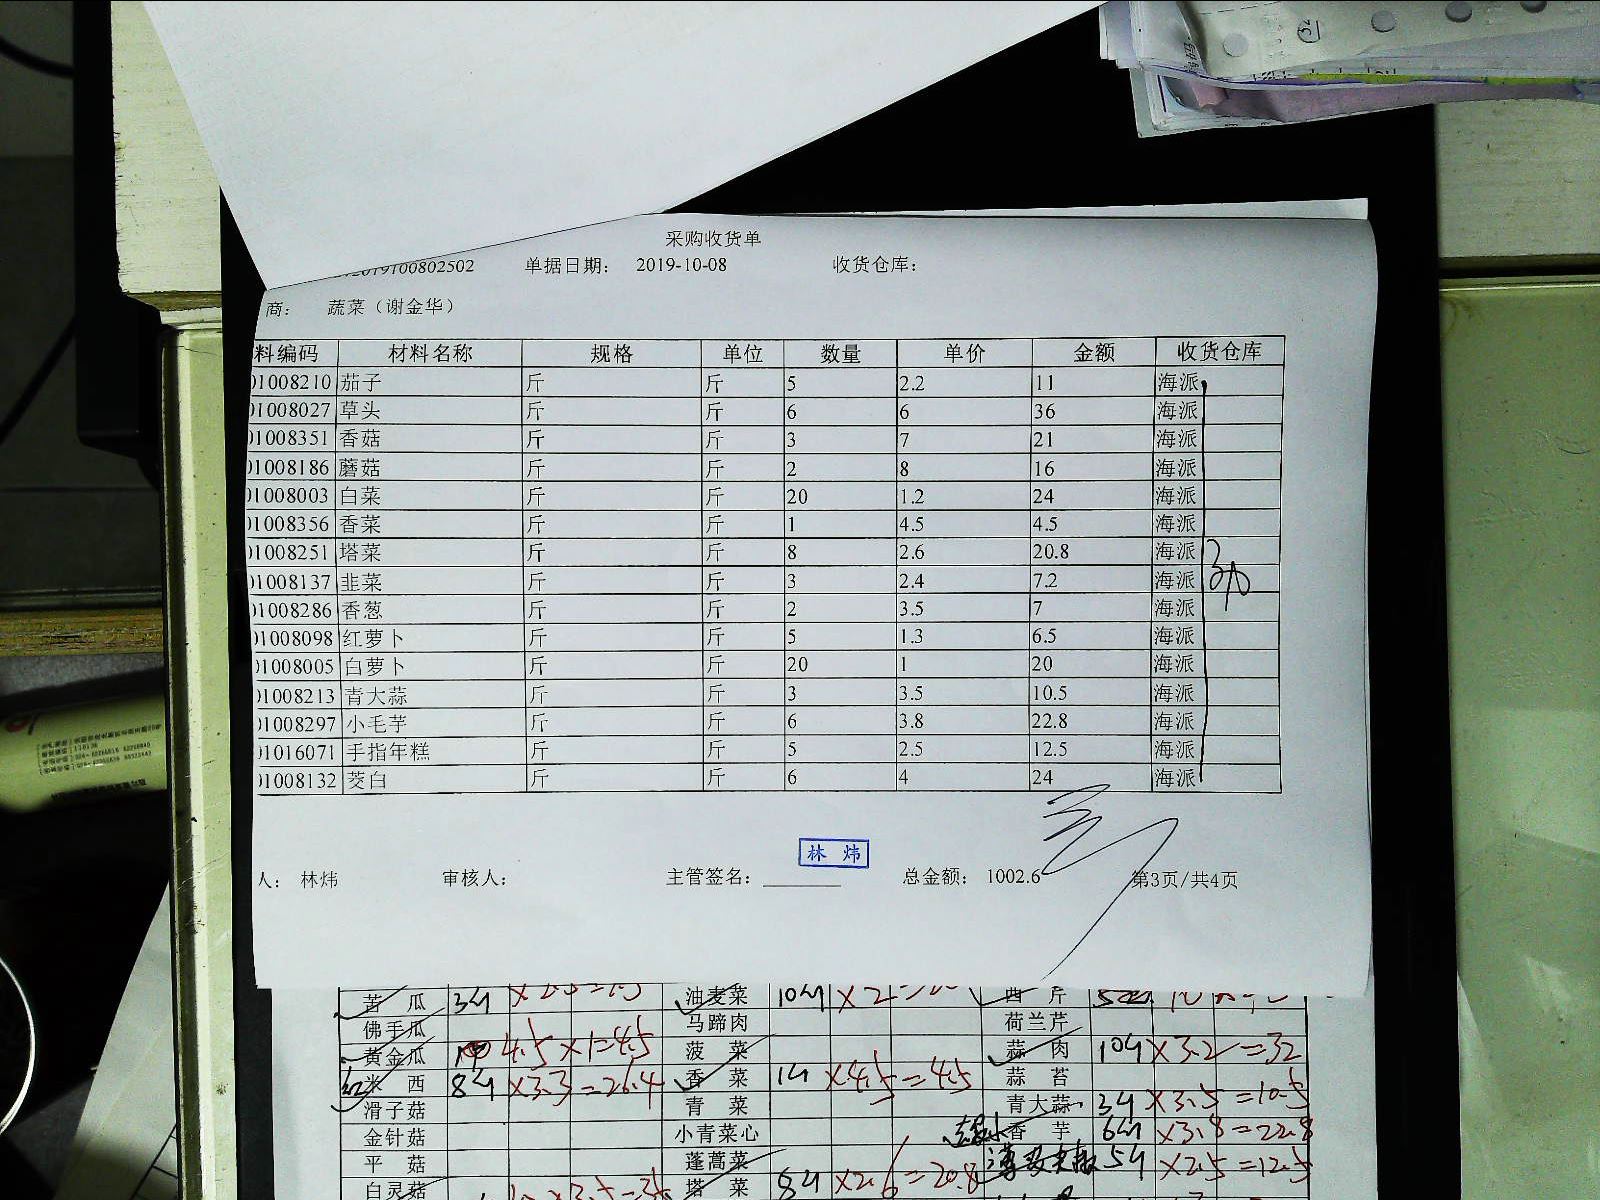 采购收货单
2019100802502 单据日期： 2019-10-08 收货仓库：
商： 蔬菜（谢金华）
料编码 材料名称 规格 单位 数量 单价 金额 收货仓库
01008210 茄子 斤 斤 5 2.2 11 海派
01008027 草头 斤 斤 6 6 36 海派
01008351 香菇 斤 斤 3 7 21 海派
01008186 蘑菇 斤 斤 2 8 16 海派
01008003 白菜 斤 斤 20 1.2 24 海派
01008356 香菜 斤 斤 1 4.5 4.5 海派
01008251 塔菜 斤 斤 8 2.6 20.8 海派
01008137 韭菜 斤 斤 3 2.4 7.2 海派
01008286 香葱 斤 斤 2 3.5 7 海派
01008098 红萝卜 斤 斤 5 1.3 6.5 海派
01008005 白萝卜 斤 斤 20 1 20 海派
01008213 青大蒜 斤 斤 3 3.5 10.5 海派
01008297 小毛芋 斤 斤 6 3.8 22.8 海派
01016071 手指年糕 斤 斤 5 2.5 12.5 海派
01008132 茭白 斤 斤 6 4 24 海派
林 炜
人： 林炜 审核人： 主管签名： 总金额： 1002.6 第3页/共4页
苦 瓜 3斤 油麦菜 10斤 ×2 西 芹
佛手瓜 马蹄肉 荷兰芹
黄金瓜 4.5×1=4.5 菠 菜 蒜 肉 10斤 ×3.2=32
米 西 8斤 ×3.3=26.4 香 菜 1斤 ×4.5=4.5 蒜 苔
滑子菇 青 菜 青大蒜 3斤 ×3.5=10.5
金针菇 小青菜心 香 芋 6斤 ×3.8=22.8
平 菇 蓬蒿菜 5斤 ×2.5=12.5
白灵菇 ×3.5=35 塔 菜 8斤 ×2.6=20.8